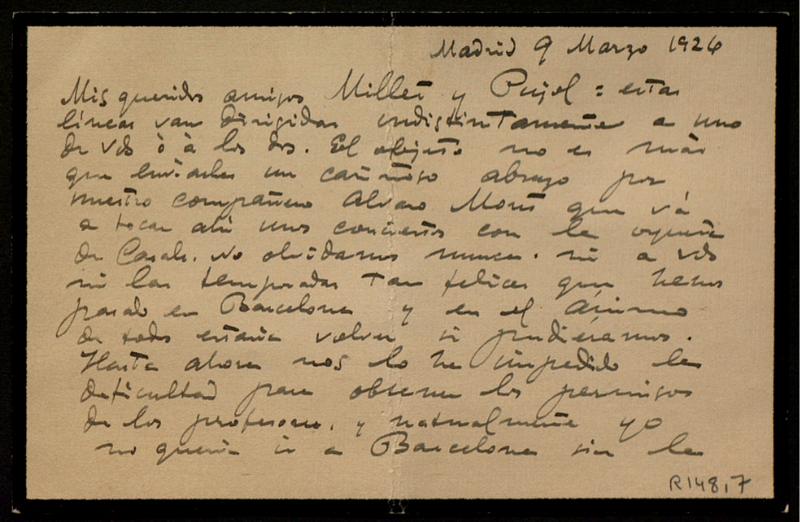 Madrid 9 Marzo 1926
Mis queridos amigos Millet y Pujol = estas
líneas van dirigidas indistintamente a uno
de Vds ó à los dos. El objeto no es más
que enviarles un cariñoso abrazo por
nuestro compañero Alvaro Mont que vá
a tocar ahi unos conciertos con la orquesta
de Casals. No olvidamos nunca ni a Vds
ni las temporadas tan felices que hemos
pasado en Barcelona y en el ánimo
de todos estaria volver si pudiéramos.
Hasta ahora nos lo ha impedido la
dificultad para obtener los permisos
de los profesores, y naturalmente yo
no queria ir a Barcelona sin la
R148,7